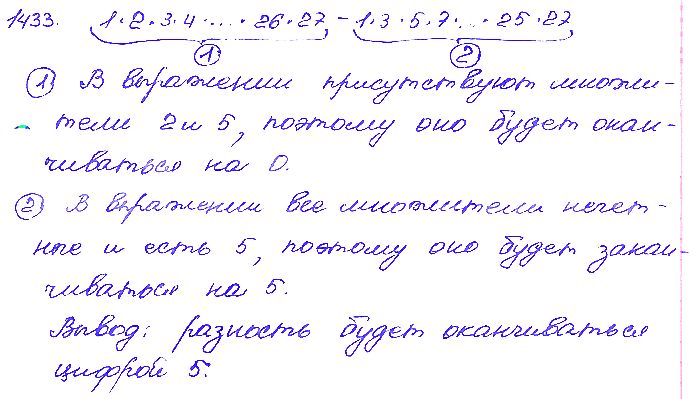 1433. 1·2·3·4·...·26·27 - 1·3·5·7·...·25·27
1 2
1 В выражении присутствуют множи-
тели 2 и 5, поэтому оно будет окан-
чиваться на 0.
2 В выражении все множители нечет-
ные и есть 5, поэтому оно будет закан-
чиваться на 5.
Вывод: разность будет оканчиваться
цифрой 5.